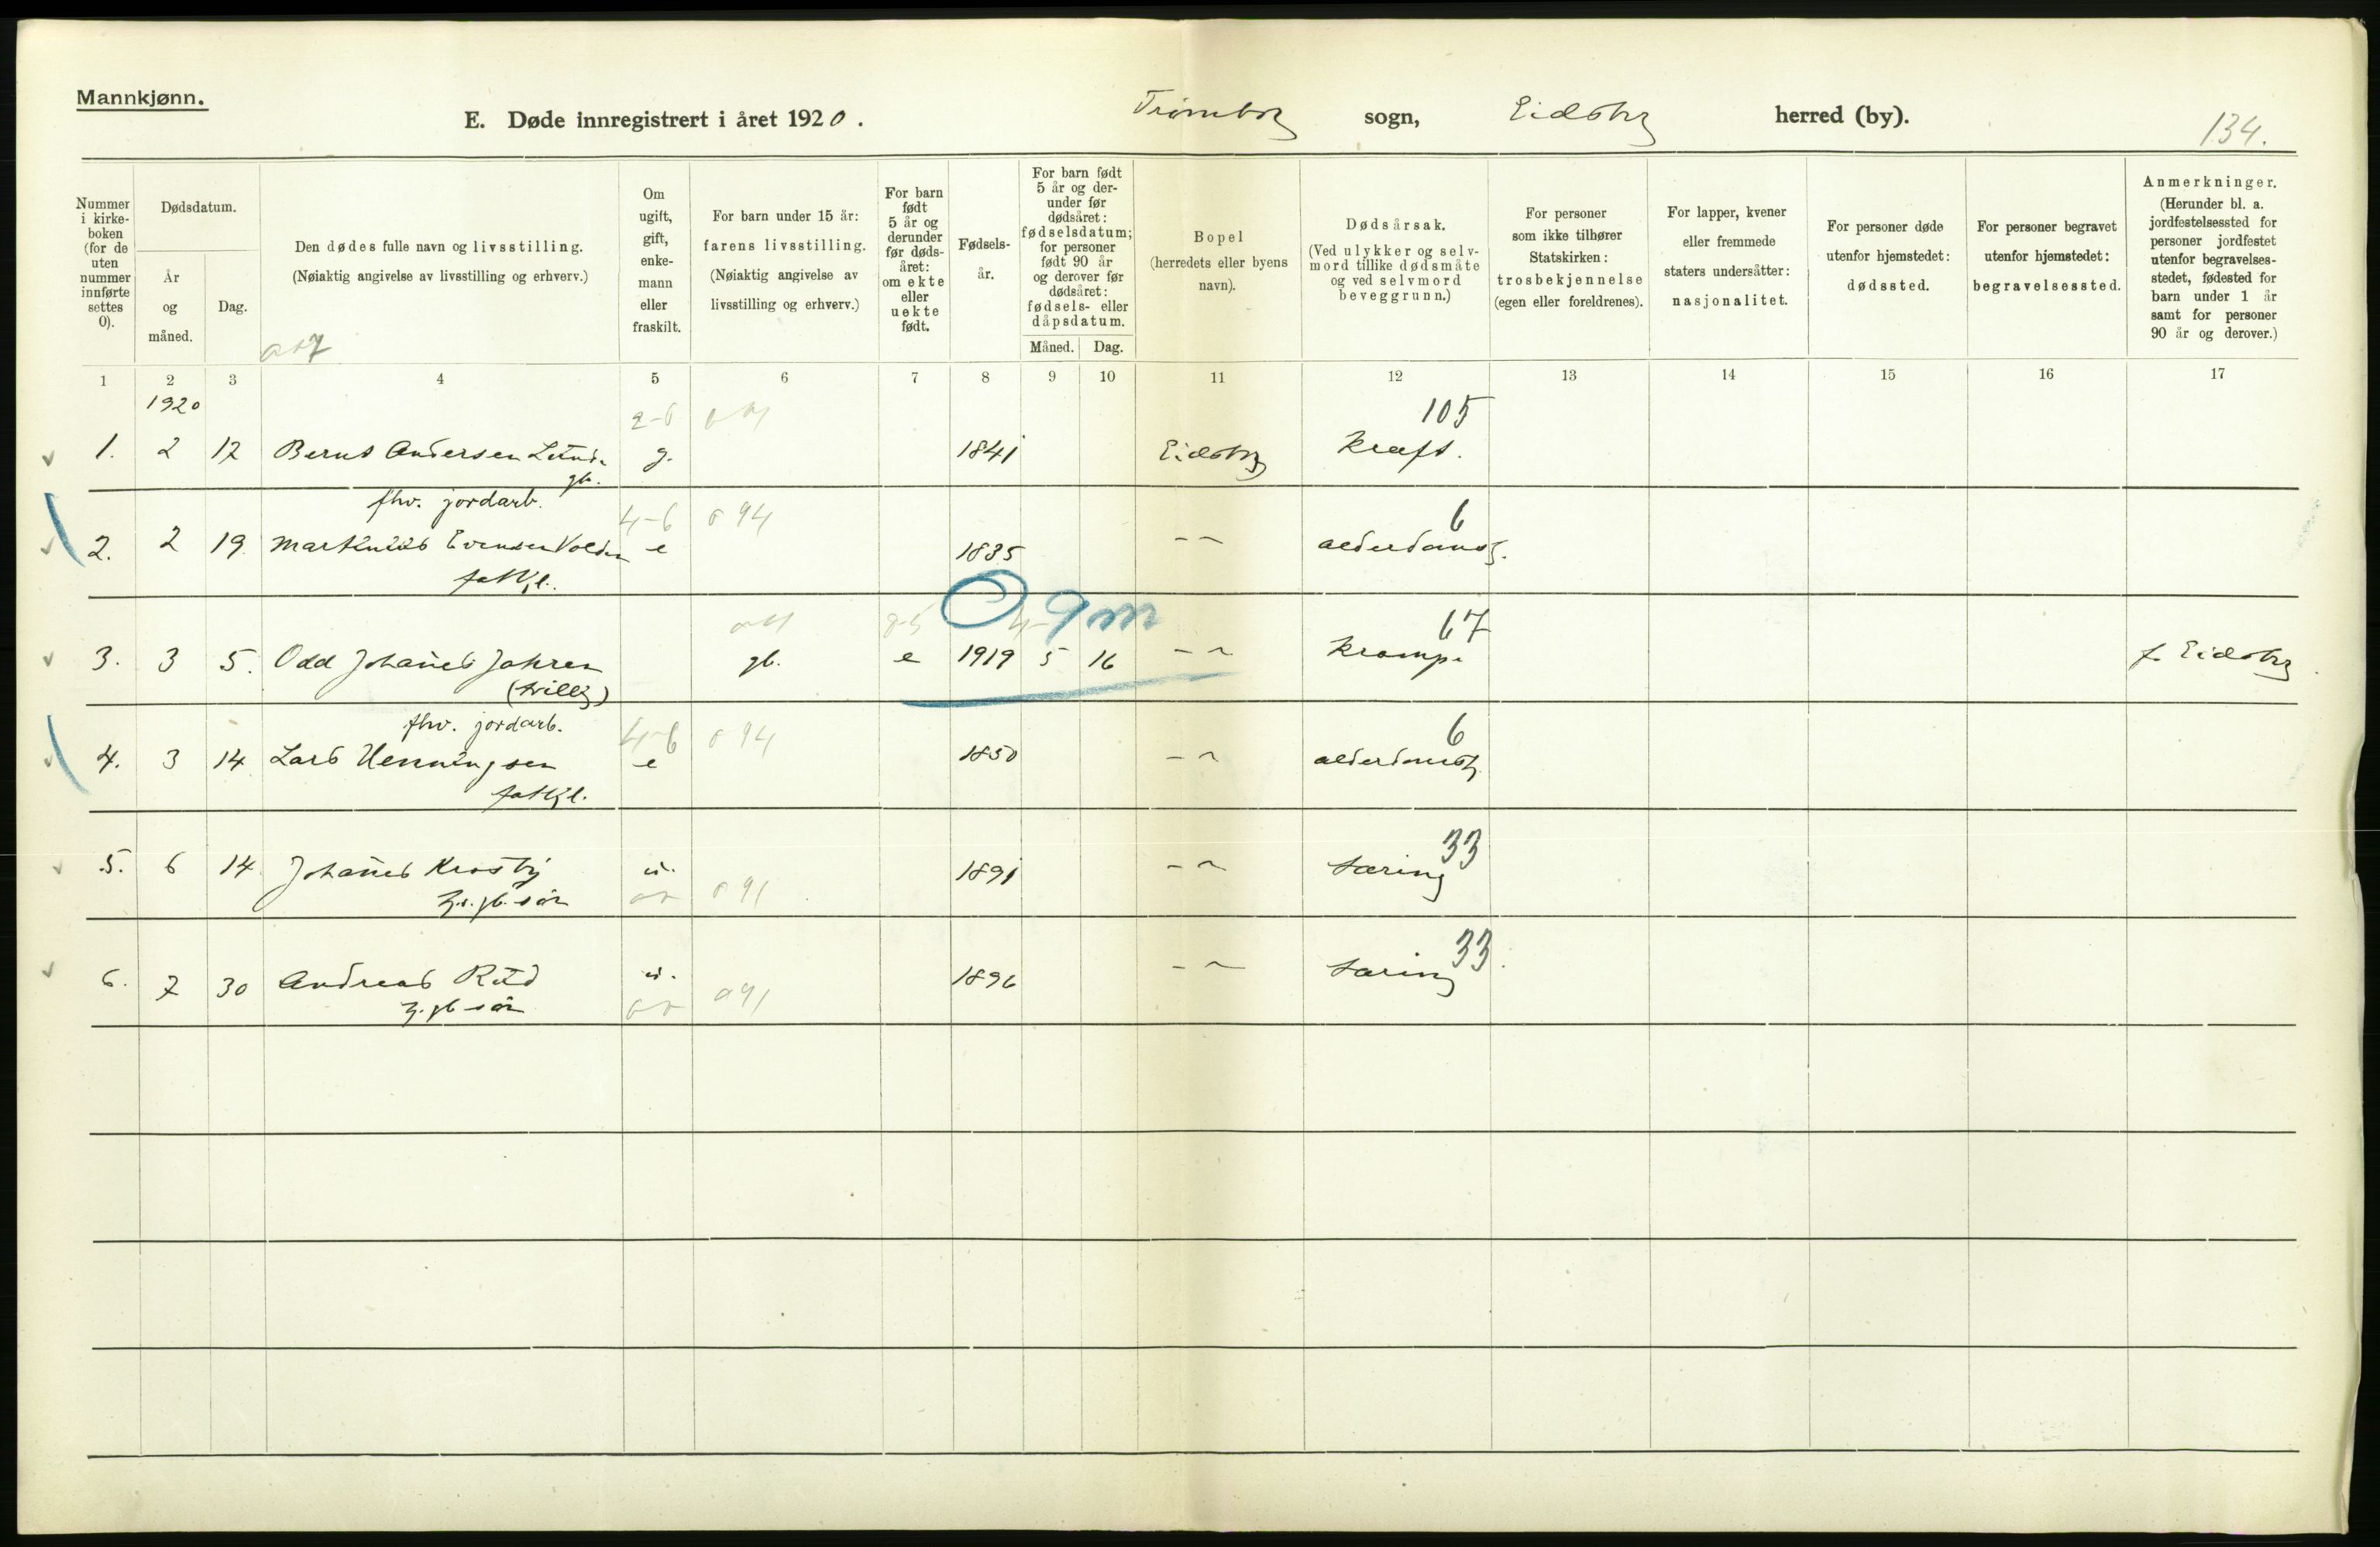 Mannkjønn.
E. Døde innregistrert i året 1920. Trømborg sogn, Eidsbrg herred (by).
134.
Nummer i kirkeboken (for de uten nummer innførte settes 0).
Dødsdatum.
År og måned.
Dag.
Den dødes fulle navn og livsstilling.
(Nøiaktig angivelse av livsstilling og erhverv.)
Om ugift, gift, enkemann eller fraskilt.
For barn under 15 år: farens livsstilling. (Nøiaktig angivelse av livsstilling og erhverv.)
For barn født 5 år og derunder før dødsåret: om ekte eller uekte født.
Fødselsår.
For barn født 5 år og derunder før dødsåret: fødselsdatum; for personer født 90 år og derover før dødsåret: fødsels- eller dåpsdatum.
Måned. Dag.
Bopel (herredets eller byens navn).
Dødsårsak. (Ved ulykker og selvmord tillike dødsmåte og ved selvmord beveggrunn.)
For personer som ikke tilhører Statskirken: trosbekjennelse (egen eller foreldrenes).
For lapper, kvener eller fremmede staters undersåtter: nasjonalitet.
For personer døde utenfor hjemstedet: dødssted.
For personer begravet utenfor hjemstedet: begravelsessted.
Anmerkninger. (Herunder bl. a. jordfestelsessted for personer jordfestet utenfor begravelsesstedet, fødested for barn under 1 år samt for personer 90 år og derover.)
1 2 3 4 5 6 7 8 9 10 11 12 13 14 15 16 17
1920
105
1. 2 12 Bernt Andersen Lund g. 1841 Eidsbrg Kræft.
gb.
fhv. jordarb. 4-6 094 6
2. 2 19. Martinius Evensen Volden e 1835 -- alderdomss.
fattigl.
0 9m 67
3. 3 5. Odd Johanes Jahren gb. e 1919 5 16 -- Krampe f. Eidsbrg
(tvillg)
fhv. jordarb. 4-6 094 6
4. 3 14 Lars Henningsen e 1850 -- alderdomss.
fattigl.
33
5. 6 14 Johanes Krosby u. 1891 -- tæring
gb. søn 091
33
6. 7 30 Andreas Rud u. 1896 -- tæring
gb søn 091